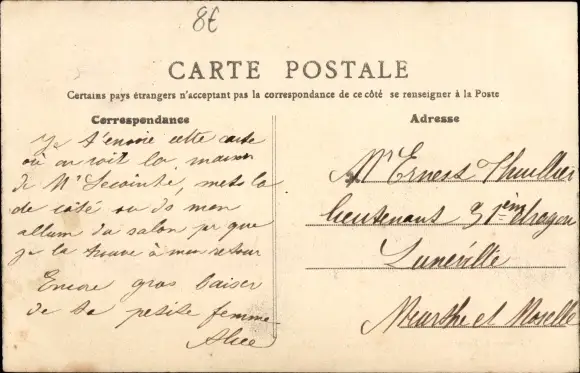 8€
CARTE POSTALE
Certains pays étrangers n'acceptent pas la correspondance de ce côté se renseigner à la Poste
Correspondance
Adresse
Je t'envoie cette carte
où on voit la maison
de Mr Lecointe, mets la
de côté ou ds mon
album du salon pr que
je la trouve à mon retour
Encore gros baiser
de ta petite femme
Alice
Mr Ernest Thuillier
lieutenant 31em dragon
Lunéville
Meurthe et Moselle